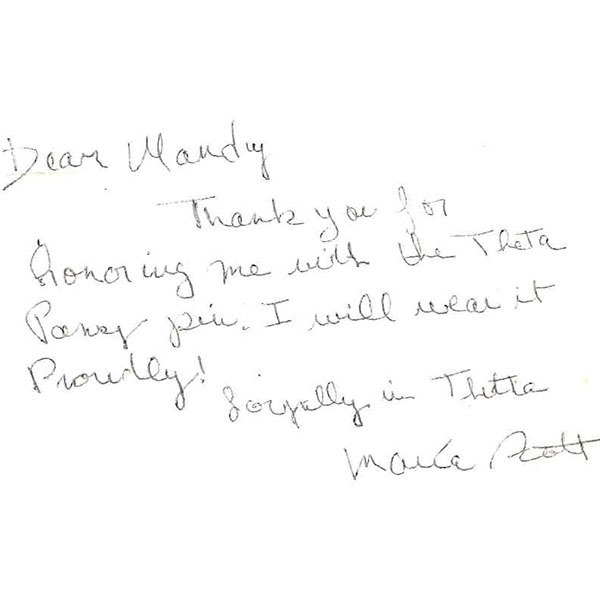 Dear Mandy
Thank you for
Honoring me with the Theta
Pansy pin. I will wear it
Proudly!
Loyally in Theta
Scott